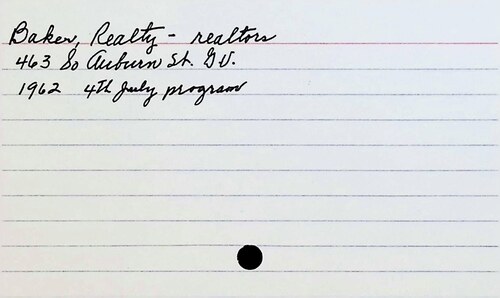 Baker, Realty - realtors
463 So Auburn St. G.V.
1962 4th July program